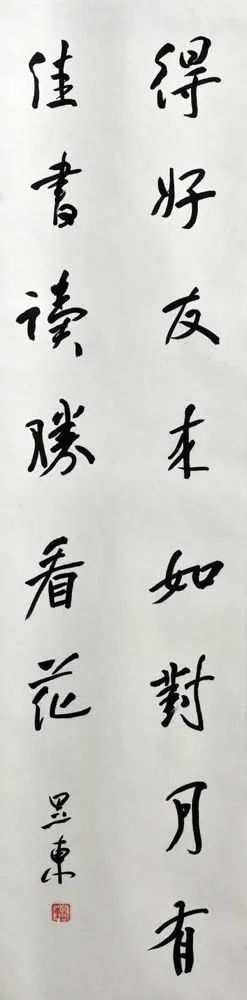 得好友来如對月有
佳書讀勝看花
東